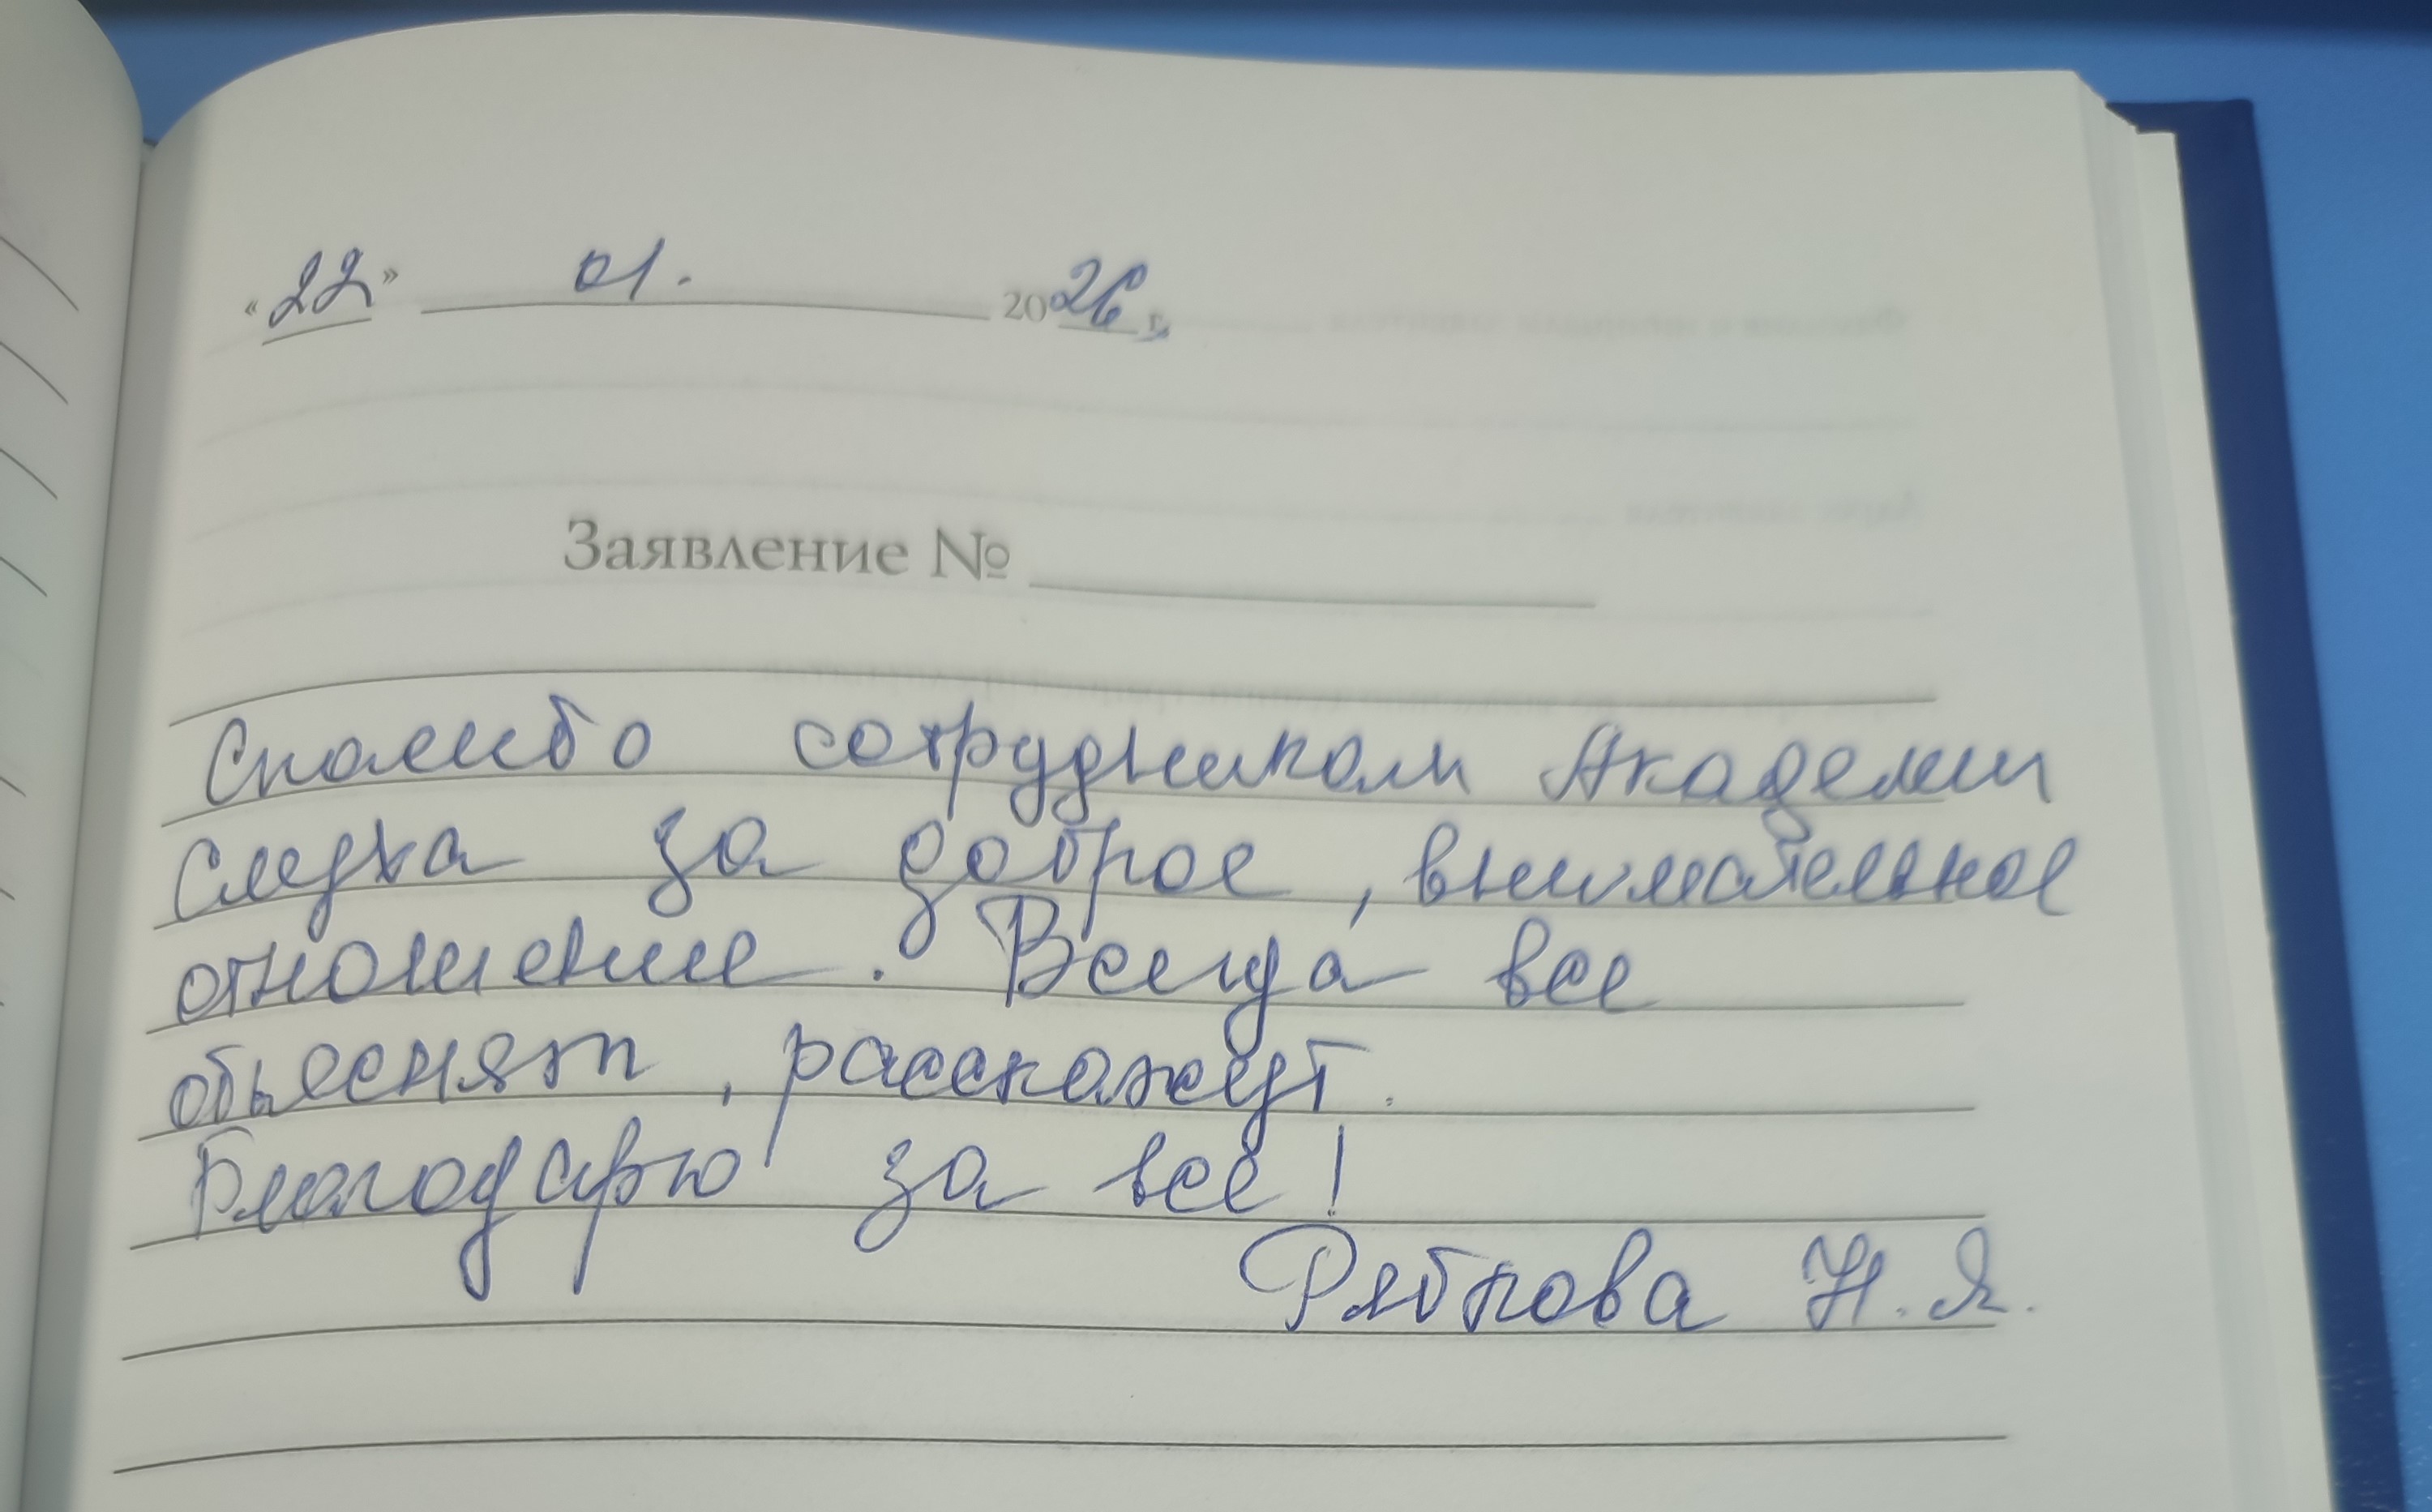 «22» 01. 2026 г.
Заявление №
Спасибо сотрудникам Академии
Слуха за доброе, внимательное
отношение. Всегда все
объяснят, расскажут.
Благодарю за всё!
Рябкова Н. Я.